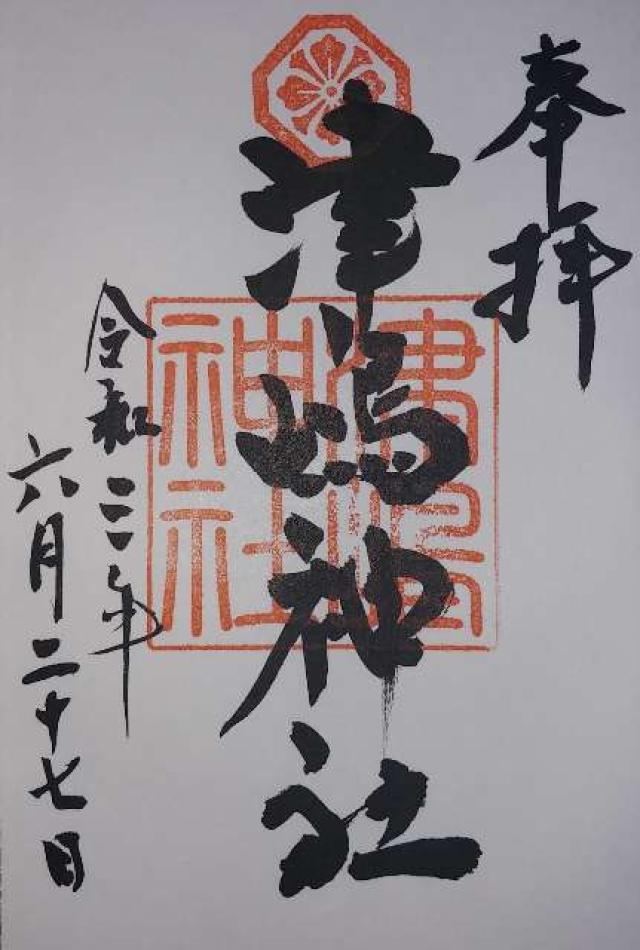 奉拝
津嶋神社
令和三年
六月二十七日
津嶋
神社